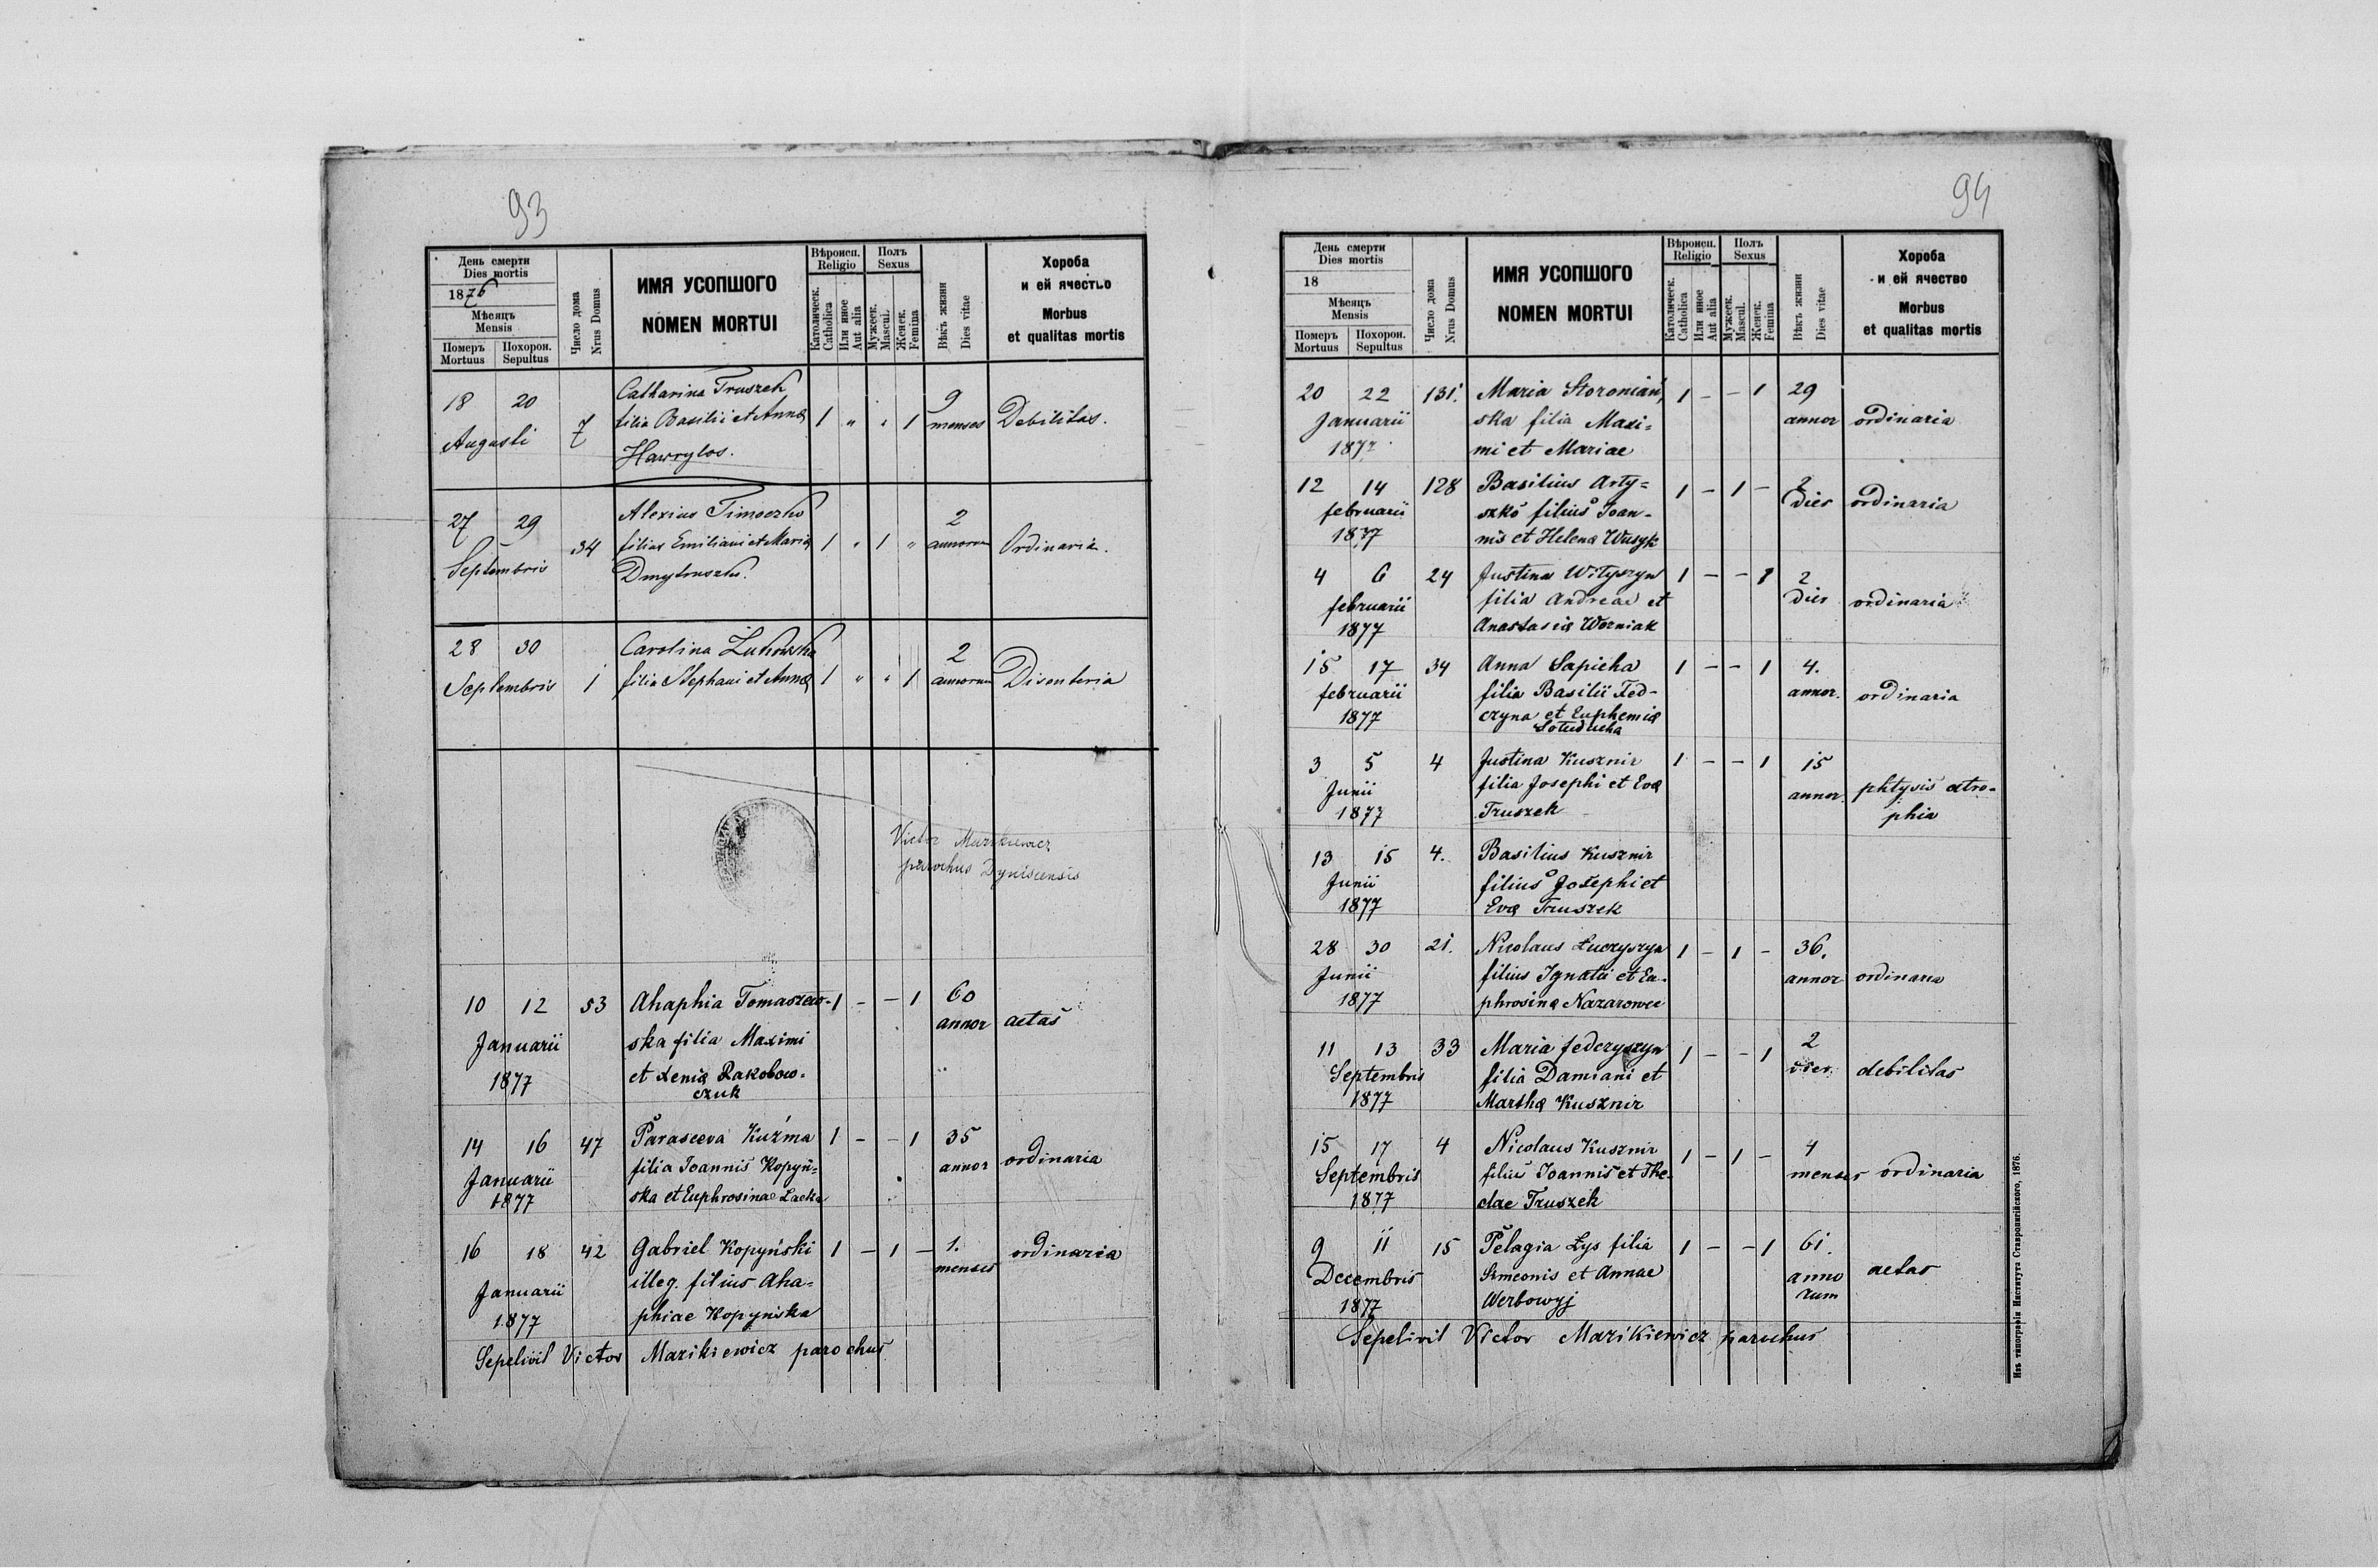 93
День смерти
Dies mortis
1876
Мѣсяцъ
Mensis
Померъ
Mortuus
Похорон.
Sepultus
Число дома
Nrus Domus
ИМЯ УСОПШОГО
NOMEN MORTUI
Вѣроисп.
Religio
Католическ.
Catholica
Или иное
Aut alia
Полъ
Sexus
Мужеск.
Mascul.
Женск.
Femina
Вѣкъ жизни
Dies vitae
Хороба
и ей ячество
Morbus
et qualitas mortis
18 20 Catharina Truszek 9
Augusti 7 filia Basilii et Annæ 1 " " 1 menses Debilitas.
Hawrylos.
27 29 Alexius Timoczko 2
Septembris 34 filius Emiliani et Mariæ 1 " 1 " annorum Ordinaria.
Dmytruszko.
28 30 Carolina 2
Septembris 1 filia Stephani et Annæ 1 " " 1 annorum Disenteria
Victor Mazikiewicz
parochus Dyniscensis
10 12 53 Ahaphia Tomaszew- 1 - - 1 60
Januarii ska filia Maximi annor aetas
1877 et Xeniæ Rakobow-
czuk
14 16 47 Parasceva Kuźma 1 - - 1 35
Januarii filia Joannis Kopyń= annor ordinaria
1877 ska et Euphrosinae Lacka
16 18 42 Gabriel Kopyński 1 - 1 - 1. ordinaria
Januarii illeg. filius Aha= menses
1877 phiae Kopyńska
Sepelivit Victor Mazikiewicz parochus
94
День смерти
Dies mortis
18
Мѣсяцъ
Mensis
Померъ
Mortuus
Похорон.
Sepultus
Число дома
Nrus Domus
ИМЯ УСОПШОГО
NOMEN MORTUI
Вѣроисп.
Religio
Католическ.
Catholica
Или иное
Aut alia
Полъ
Sexus
Мужеск.
Mascul.
Женск.
Femina
Вѣкъ жизни
Dies vitae
Хороба
и ей ячество
Morbus
et qualitas mortis
20 22 131. Maria Storoniań, 1 - - 1 29
Januarii ska filia Maxi= annor ordinaria
1877 mi et Mariae
12 14 128 Basilius Arty= 1 - 1 - 2
februarii szko filius Joan- dies ordinaria
1877 nis et Helenæ Wusyk
4 6 24 Justina Wityszyn 1 - - 1 2
februarii filia Andreae et dies ordinaria
1877 Anastasiæ Worniak
15 17 34 Anna Sapieha 1 - - 1 4.
februarii filia Basilii Fed- annor. ordinaria
1877 czyna et Euphemiæ
Soluducha
3 5 4 Justina Kusznir 1 - - 1 15
Junii filia Josephi et Evæ annor. phtysis atro-
1877 Truszek phia
13 15 4. Basilius Kusznir
Junii filius Josephi et
1877 Evæ Truszek
28 30 21. Nicolaus Łuczyszyn 1 - 1 - 36.
Junii filius Ignatii et Eu- annor ordinaria
1877 phrosinæ Nazarowec
11 13 33 Maria fedczyszyn 1 - - 1 2
Septembris filia Damiani et dies. debilitas
1877 Marthæ Kusznir
15 17 4 Nicolaus Kusznir 1 - 1 - 4
Septembris filius Joannis et The- menses ordinaria
1877 clae Truszek
9 11 15 Pelagia Łys filia 1 - - 1 61.
Decembris Simeonis et Annae anno aetas
1877 Werbowyj rum
Sepelivit Victor Mazikiewicz parochus
Изъ типографіи Института Ставропигійского, 1876.